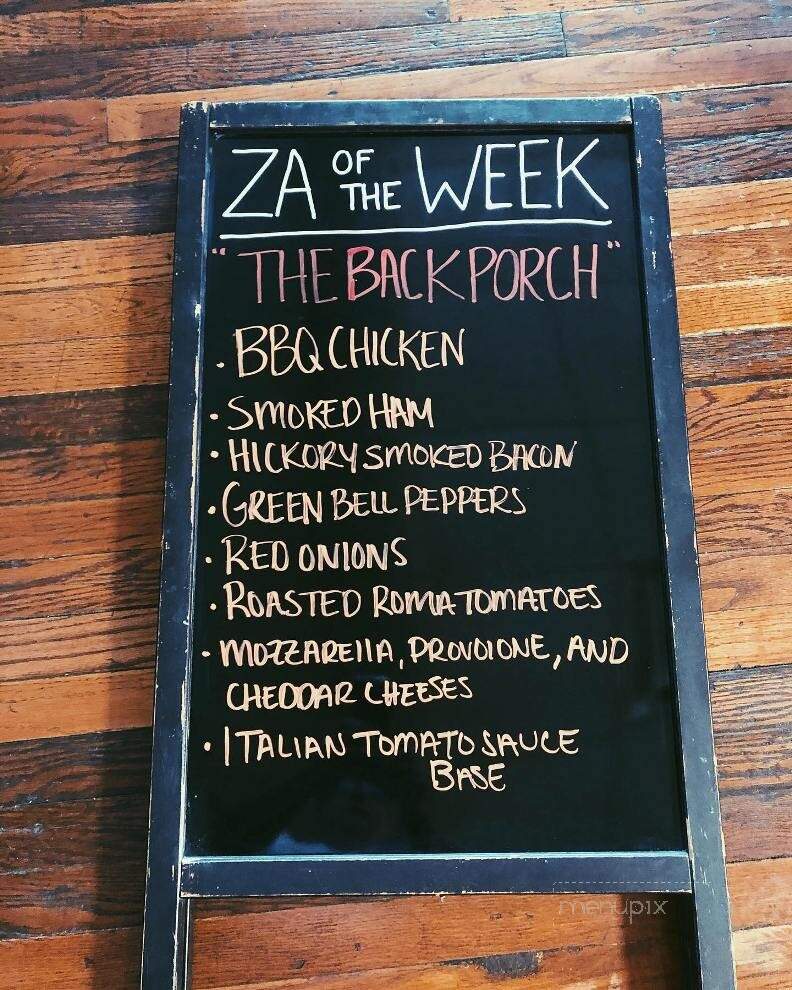 ZA OF THE WEEK
"THE BACK PORCH"
• BBQ CHICKEN
• SMOKED HAM
• HICKORY SMOKED BACON
• GREEN BELL PEPPERS
• RED ONIONS
• ROASTED ROMA TOMATOES
• MOZZARELLA, PROVOLONE, AND
CHEDDAR CHEESES
• ITALIAN TOMATO SAUCE
BASE
menupix